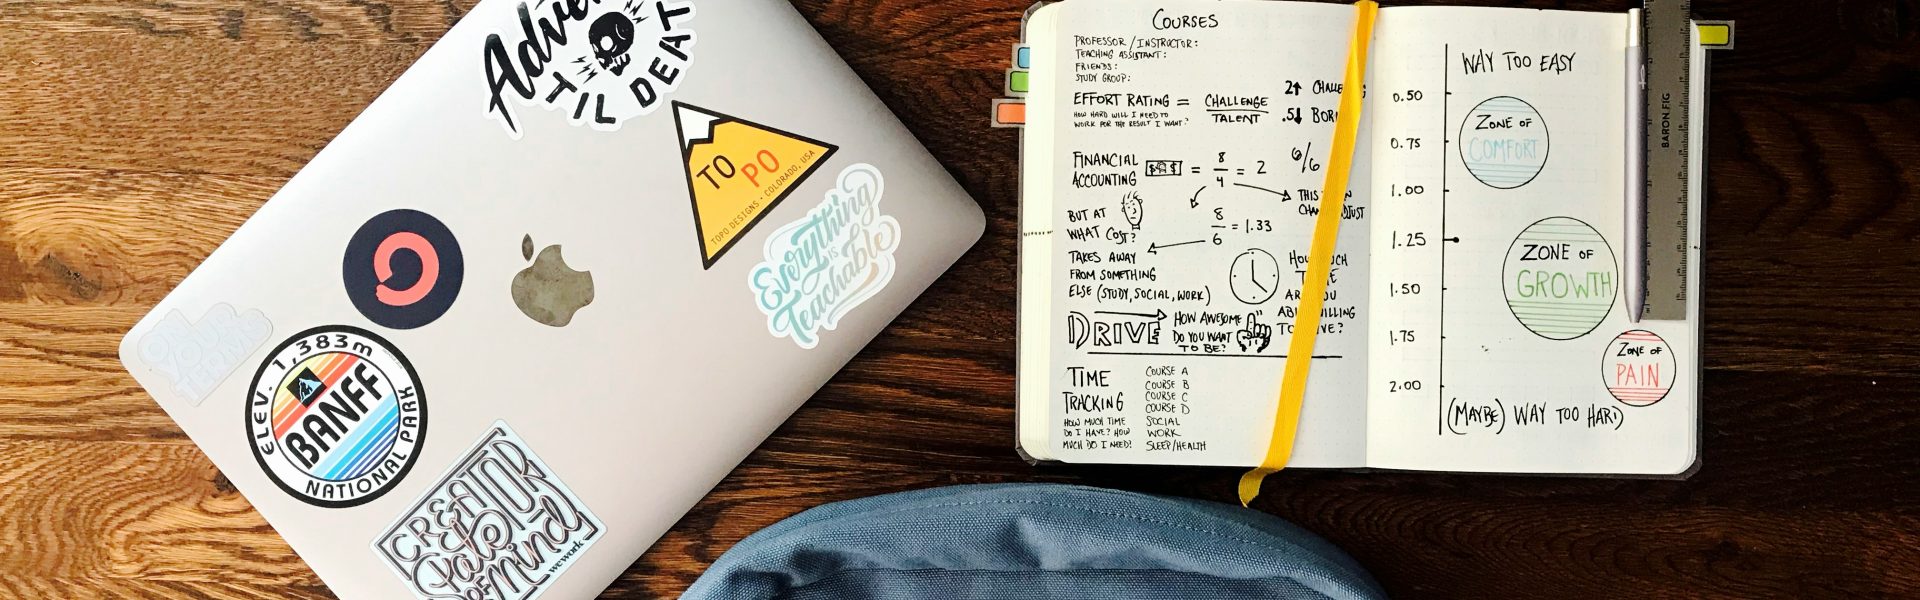 TIL DEAT
TO
PO
TOPO DESIGNS · COLORADO, USA
Everything
IS
Teachable
ON
YOUR
TEAM
ELEV. 1,383m
BANFF
NATIONAL PARK
CREATOR
OF Mind
wework
COURSES
PROFESSOR / INSTRUCTOR:
TEACHING ASSISTANT:
FRIENDS:
STUDY GROUP:
EFFORT RATING = CHALLENGE
TALENT
HOW HARD WILL I NEED TO
WORK FOR THE RESULT I WANT?
2↑
.5↓
FINANCIAL
ACCOUNTING
$ $ = 8/4 = 2
6/6
8/6 = 1.33
THIS
BUT AT
WHAT COST?
TAKES AWAY
FROM SOMETHING
ELSE (STUDY, SOCIAL, WORK)
DRIVE
HOW AWESOME
DO YOU WANT
TO BE?
TIME
TRACKING
HOW MUCH TIME
DO I HAVE? HOW
MUCH DO I NEED?
COURSE A
COURSE B
COURSE C
COURSE D
SOCIAL
WORK
SLEEP/HEALTH
WAY TOO EASY
0.50
0.75
1.00
1.25
1.50
1.75
2.00
ZONE OF
COMFORT
ZONE OF
GROWTH
ZONE OF
PAIN
(MAYBE) WAY TOO HARD
BARON FIG